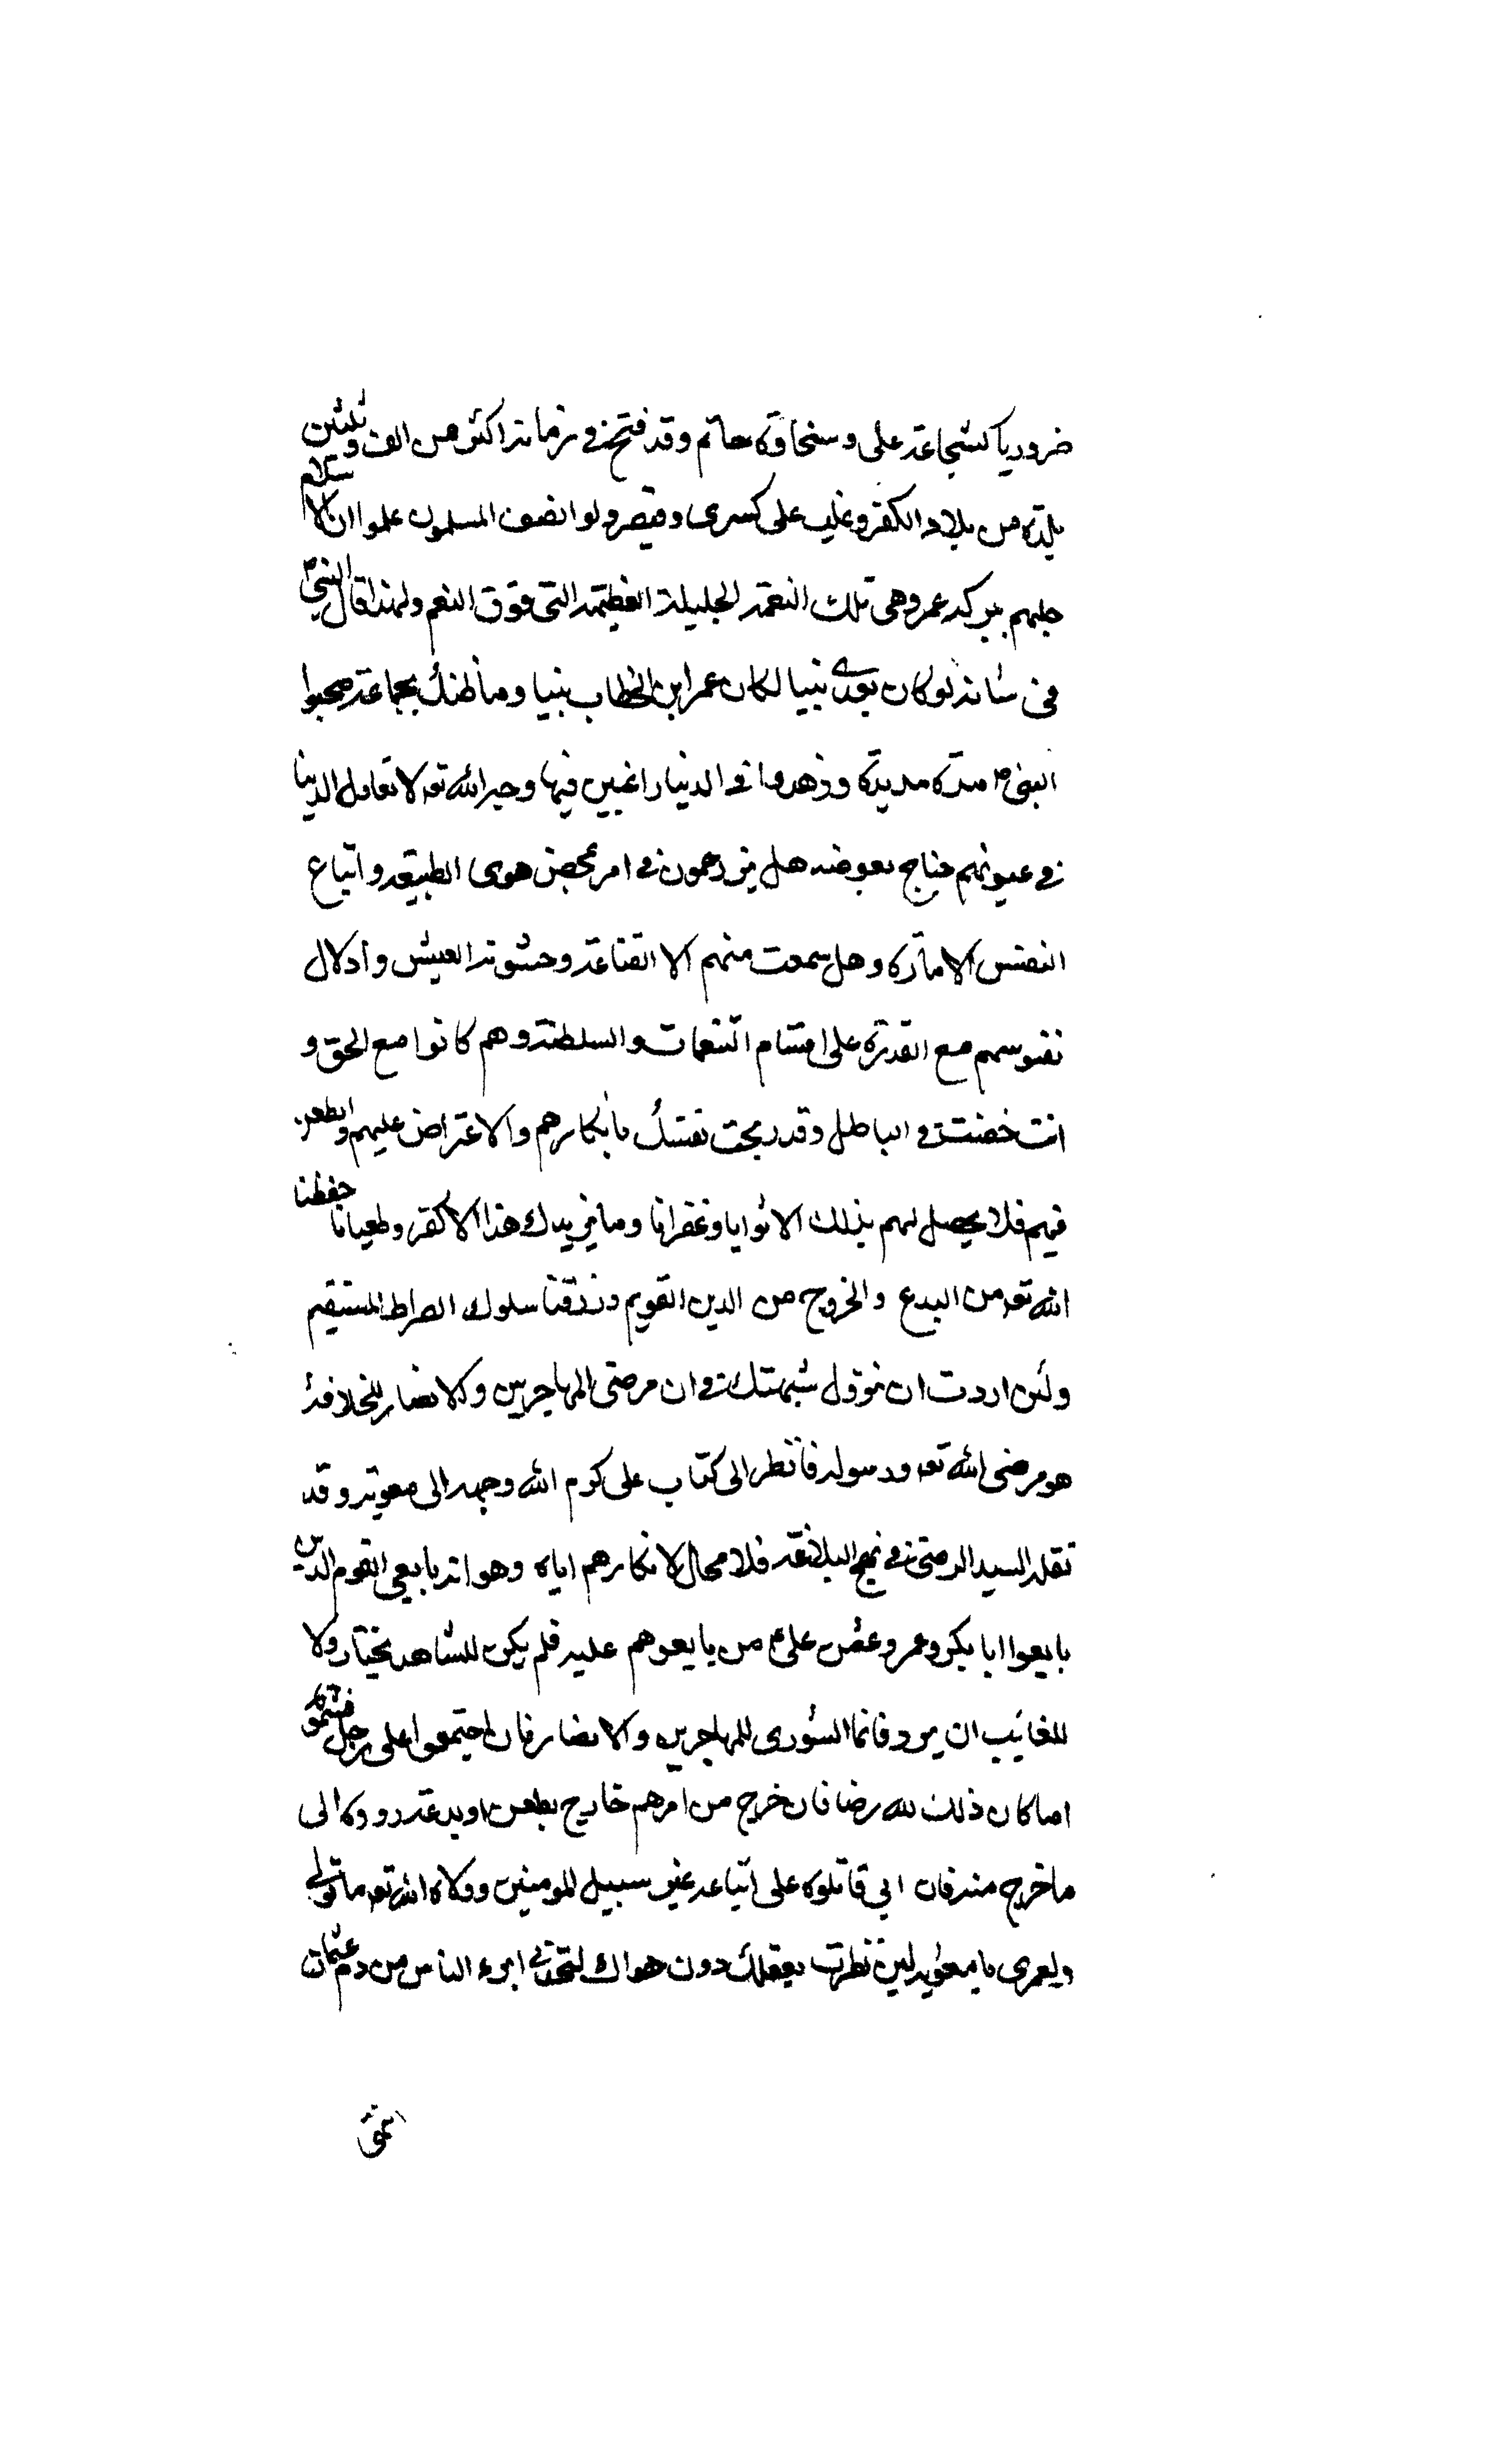 ضروريا كشجاعة على وسخاوة حاتم وقد فتح في زمانه اكثر من الف وثلثين
بلدة من بلاد الكفر وغلب على كسرى وقيصر ولو انصف المسلمون علموا ان الاسلام
جلهم ببركة عمر وهى تلك النعمة الجليلة العظيمة التى فوق النعم ولهذا قال النبي ص
في شانه لو كان بعدى نبيا لكان عمر ابن الخطاب نبيا وما ظنك بجماعة صحبوا
النبى ص مدة مديدة وزهدوا في الدنيا راغبين فيها وجير الله تعه لا تعادل الدنيا
في عيونهم جناح بعوضة هل يزدحمون في امر بمحض هوى الطبيعة واتباع
النفس الامارة وهل سمعت منهم الا القناعة وخشونة العيش واذلال
نفوسهم مع القدرة على اقسام التنعمات والسلطنة وهم كانوا مع الحق و
انت خضت في الباطل وقد ربحت نفسك بانكارهم والاعتراض عليهم والطعن
فيهم فلا يحصل لهم بذلك الا ثوابا وغفرانا وما يزيدك هذا الا كفر وطغيانا حفظنا
الله تعه من البدع والخروج من الدين القويم ورزقنا سلوك الصراط المستقيم
ولئن اردت ان نزول شبهتك في ان مرضى المهاجرين والانصار للخلافة
هو مرضى الله تعه ورسوله فانظر الى كتاب على كرم الله وجهه الى معوية وقد
نقله السيد الرضى في نهج البلاغة فلا مجال لانكارهم اياه وهو انه بايعى القوم الذين
بايعوا ابا بكر وعمر وعثمن على من بايعوهم عليه فلم يكن للشاهد يختار ولا
للغايب ان يرد فانما الشورى للمهاجرين والانصار فان اجتمعوا على رجل فسموه
اماما كان ذلك لله رضا فان خرج من امرهم خارج بطعن او بدعة ردوه الى
ما خرج منه فان ابي قاتلوه على اتباعه غير سبيل المومنين وولاه الله تعه ما تولى
ولعمرى يا معوية لين نظرت بعقلك دون هواك لتجدني ابرء الناس من دم عثمان